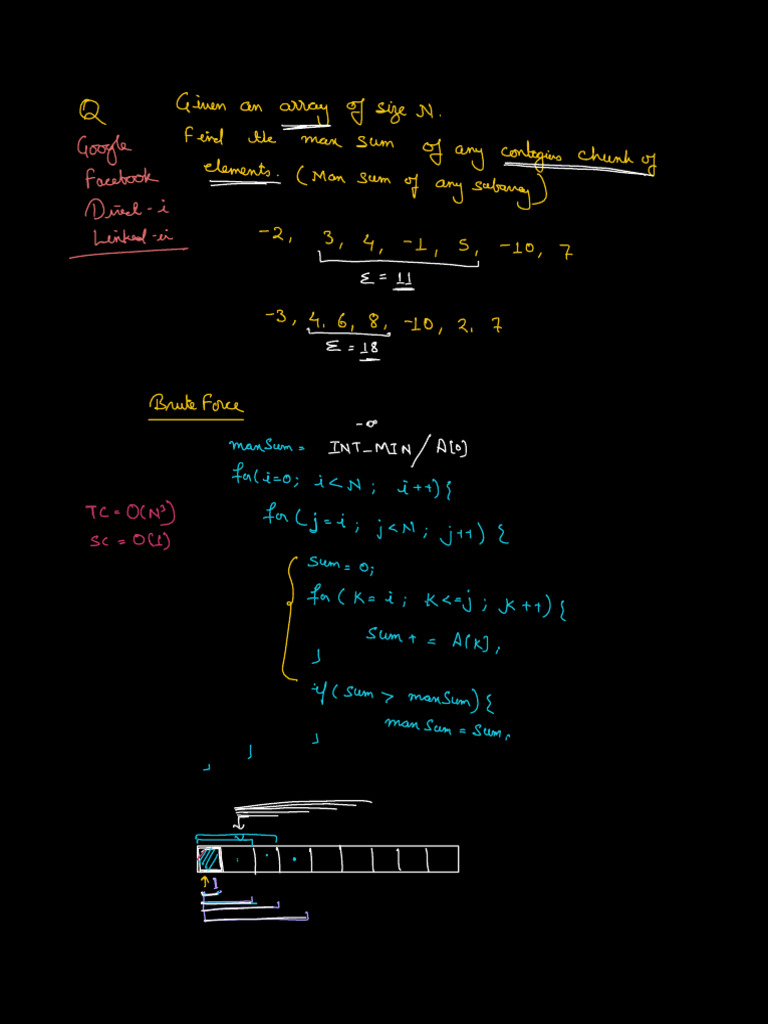 Q Given an array of size N.
Google Find the max sum of any contegius chunk of
Facebook elements. (Max sum of any subarray)
Direct-i
Linked-in
-2, 3, 4, -1, 5, -10, 7
Σ = 11
-3, 4, 6, 8, -10, 2, 7
Σ = 18
Brute Force
-∞
maxSum = INT_MIN / A[0]
for(i=0; i<N; i++){
TC = O(N³)
for(j=i; j<N; j++){
SC = O(1)
sum = 0;
for(K=i; K<=j; K++){
sum += A[K];
}
if(sum > maxSum){
maxSum = sum;
}
}
}